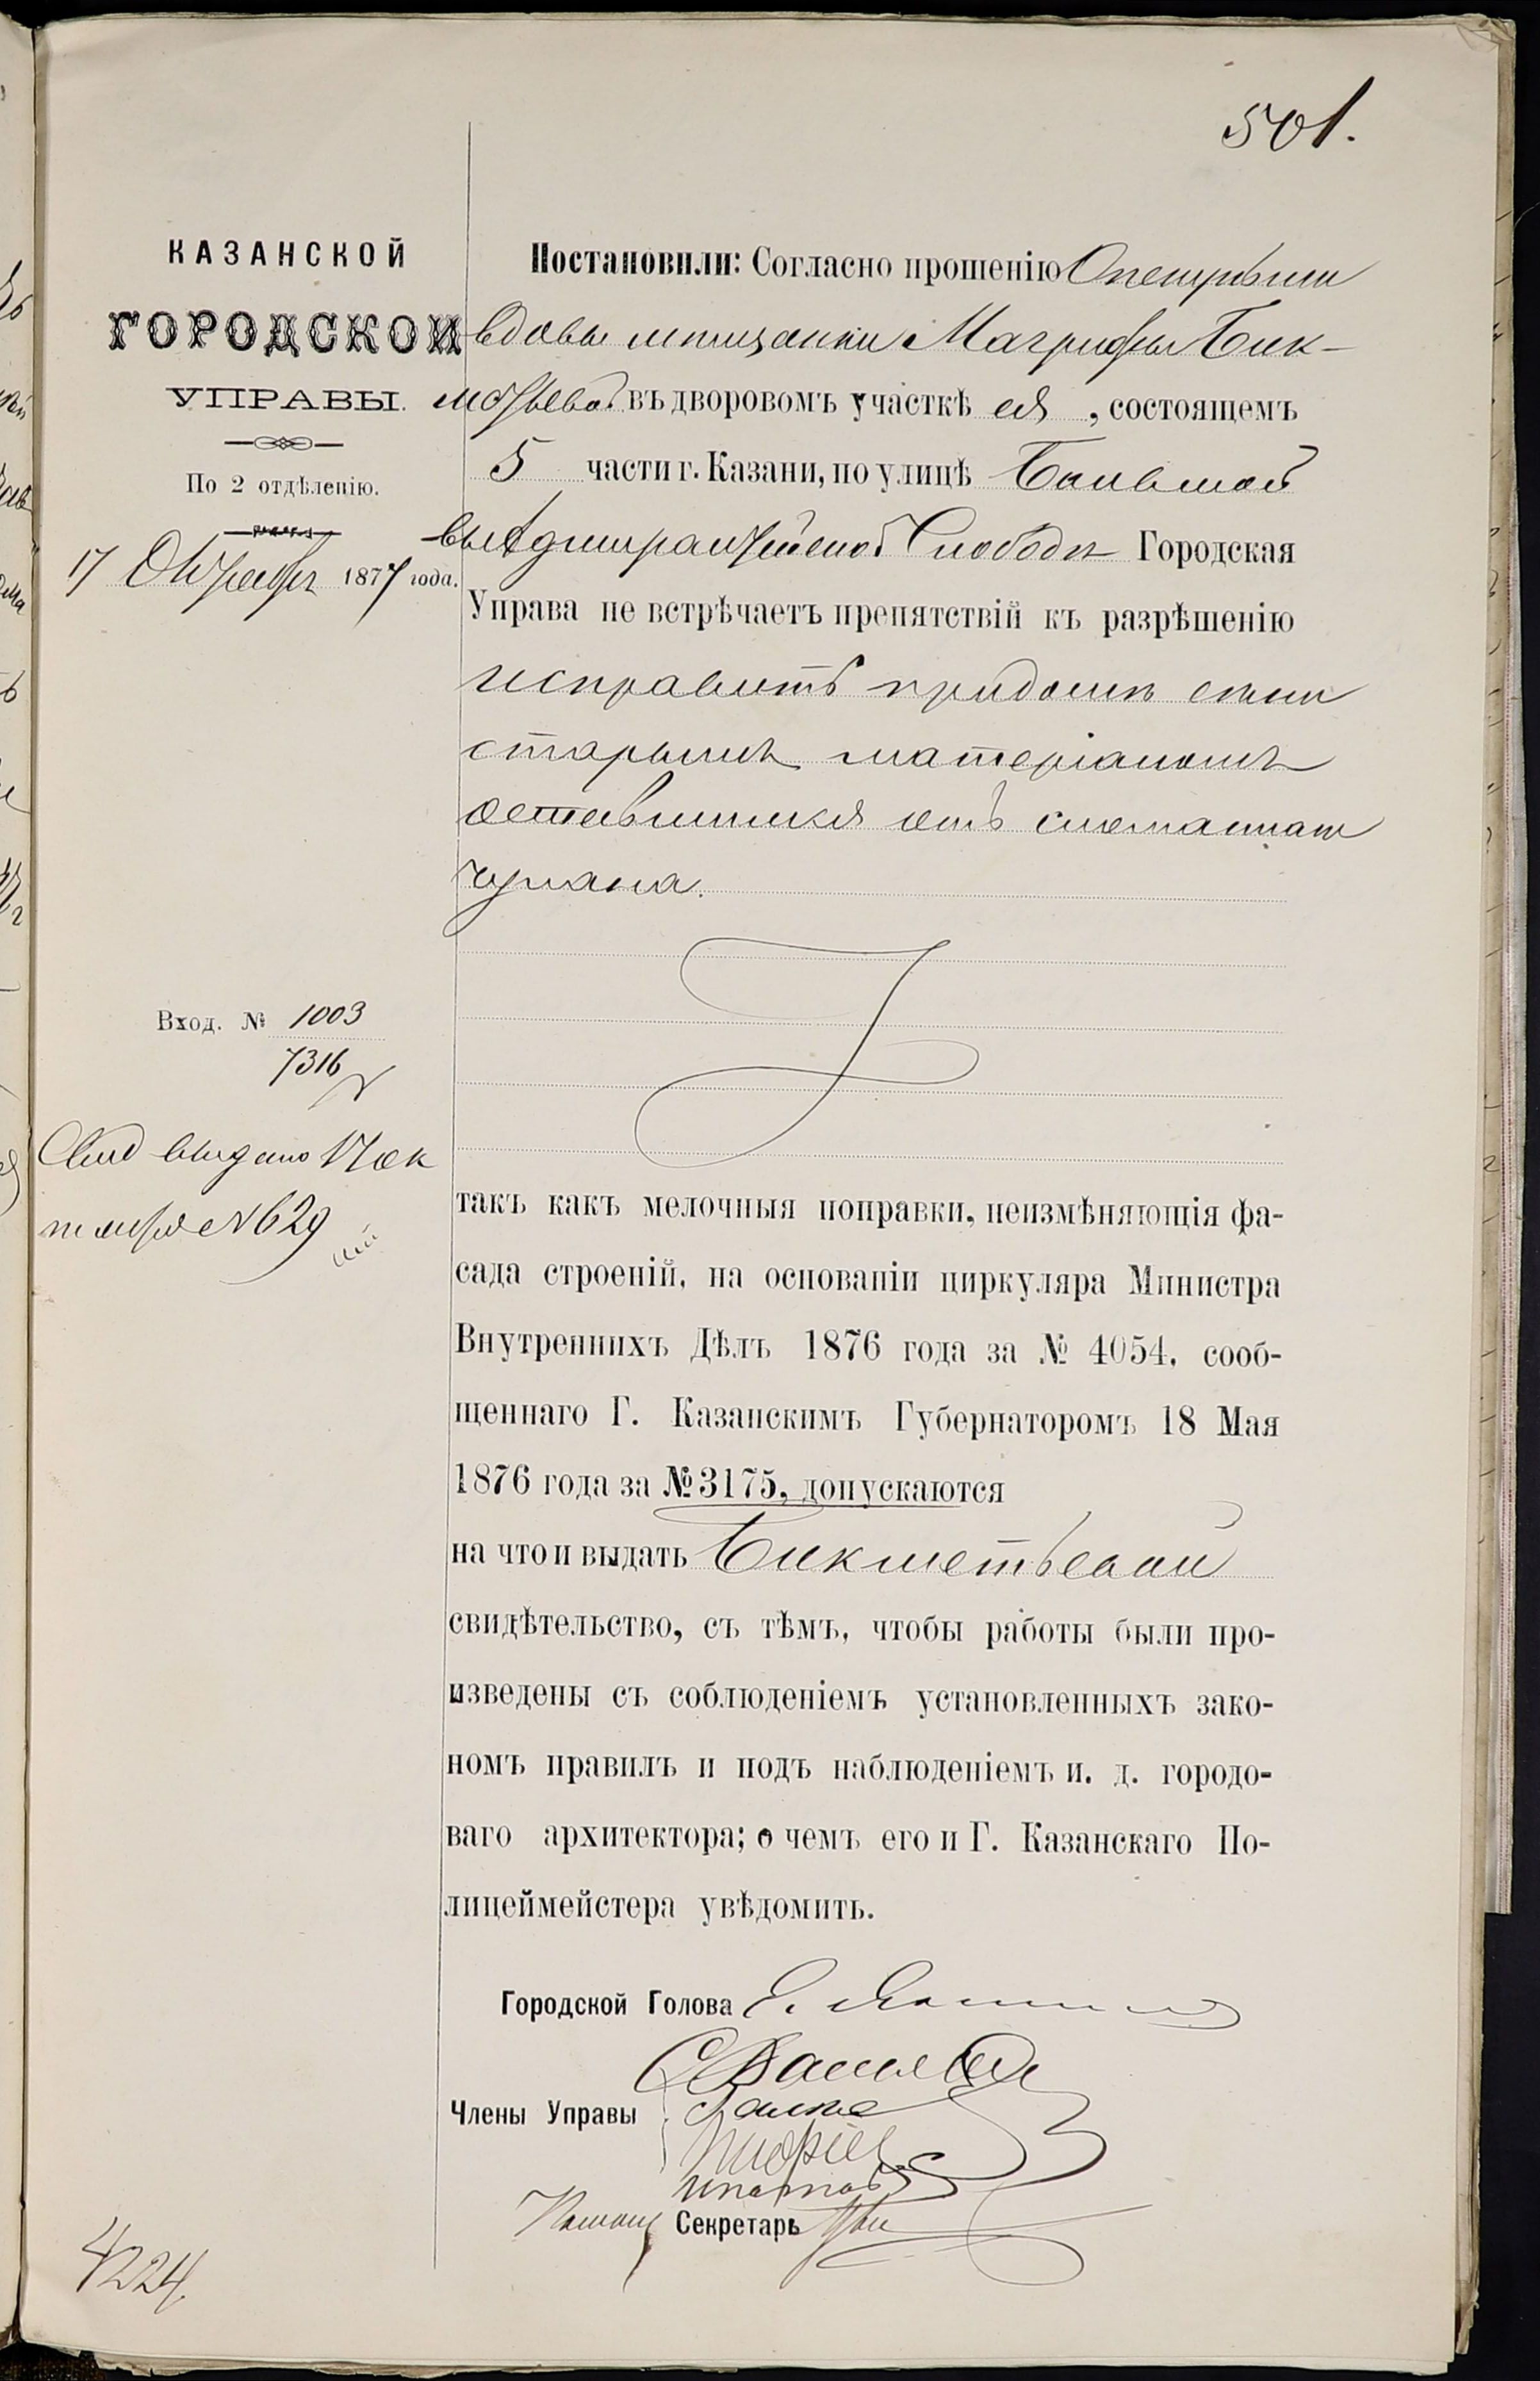 501.
КАЗАНСКОЙ
ГОРОДСКОЙ
УПРАВЫ.
По 2 отдѣленію.
17 Октября 1877 года.
Вход. № 1003
7316
Свид выдано 17 ок
тября № 629
4224.
Постановили: Согласно прошенію Опекунши
вдовы мѣщанки Магрифы Бик-
метьевой въ дворовомъ участкѣ ея, состоящемъ
5 части г. Казани, по улицѣ Большой
въ Адмиралтейской Слободѣ Городская
Управа не встрѣчаетъ препятствій къ разрѣшенію
исправить при домѣ сѣни
старымъ матеріаломъ
оставшимся отъ сломаннаго
чулана.
такъ какъ мелочныя поправки, неизмѣняющія фа-
сада строеній, на основаніи циркуляра Министра
Внутреннихъ Дѣлъ 1876 года за № 4054, сооб-
щеннаго Г. Казанскимъ Губернаторомъ 18 Мая
1876 года за № 3175, допускаются
на что и выдать Бикметьевой
свидѣтельство, съ тѣмъ, чтобы работы были про-
изведены съ соблюденіемъ установленныхъ зако-
номъ правилъ и подъ наблюденіемъ и. д. городо-
ваго архитектора; о чемъ его и Г. Казанскаго По-
лицеймейстера увѣдомить.
Городской Голова
Члены Управы
Помощ Секретарь